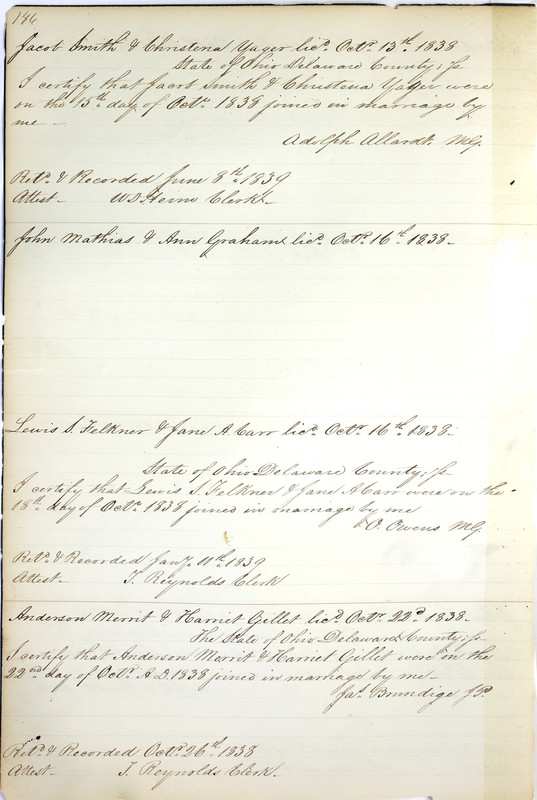 146
Jacob Smith & Christena Yager licd. Octr. 13th. 1838
State of Ohio Delaware County; ss
I certify that Jacob Smith & Christena Yager were
on the 15th day of Octr. 1838 joined in marriage by
me —
Adolph Allardt. MG.
Retd. & Recorded June 8th. 1839
Attest — W.D. Heim Clerk —
John Mathias & Ann Graham licd. Octr. 16th. 1838 —
Lewis S. Felkner & Jane A. Carr licd. Octr. 16th. 1838 —
State of Ohio Delaware County; ss
I certify that Lewis S. Felkner & Jane A Carr were on the
18th. day of Octr. 1838 joined in marriage by me
O. Owens MG.
Retd. & Recorded Jany. 11th. 1839
Attest — T. Reynolds Clerk
Anderson Merrit & Harriet Gillet licd. Octr. 22d. 1838 —
The State of Ohio Delaware County; ss
I certify that Anderson Merrit & Harriet Gillet were on the
22nd day of Octr. A D. 1838 joined in marriage by me —
Jas. Brundige JP.
Retd. & Recorded Octr. 26th. 1838
Attest — T. Reynolds Clerk.